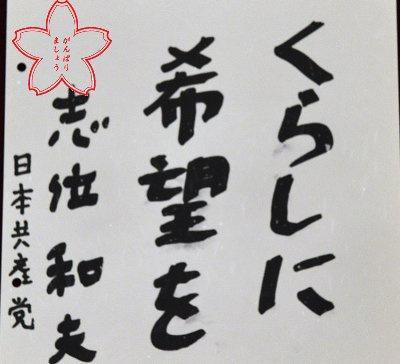 くらしに
希望を
志位和夫
日本共産党
がんばり
ましょう